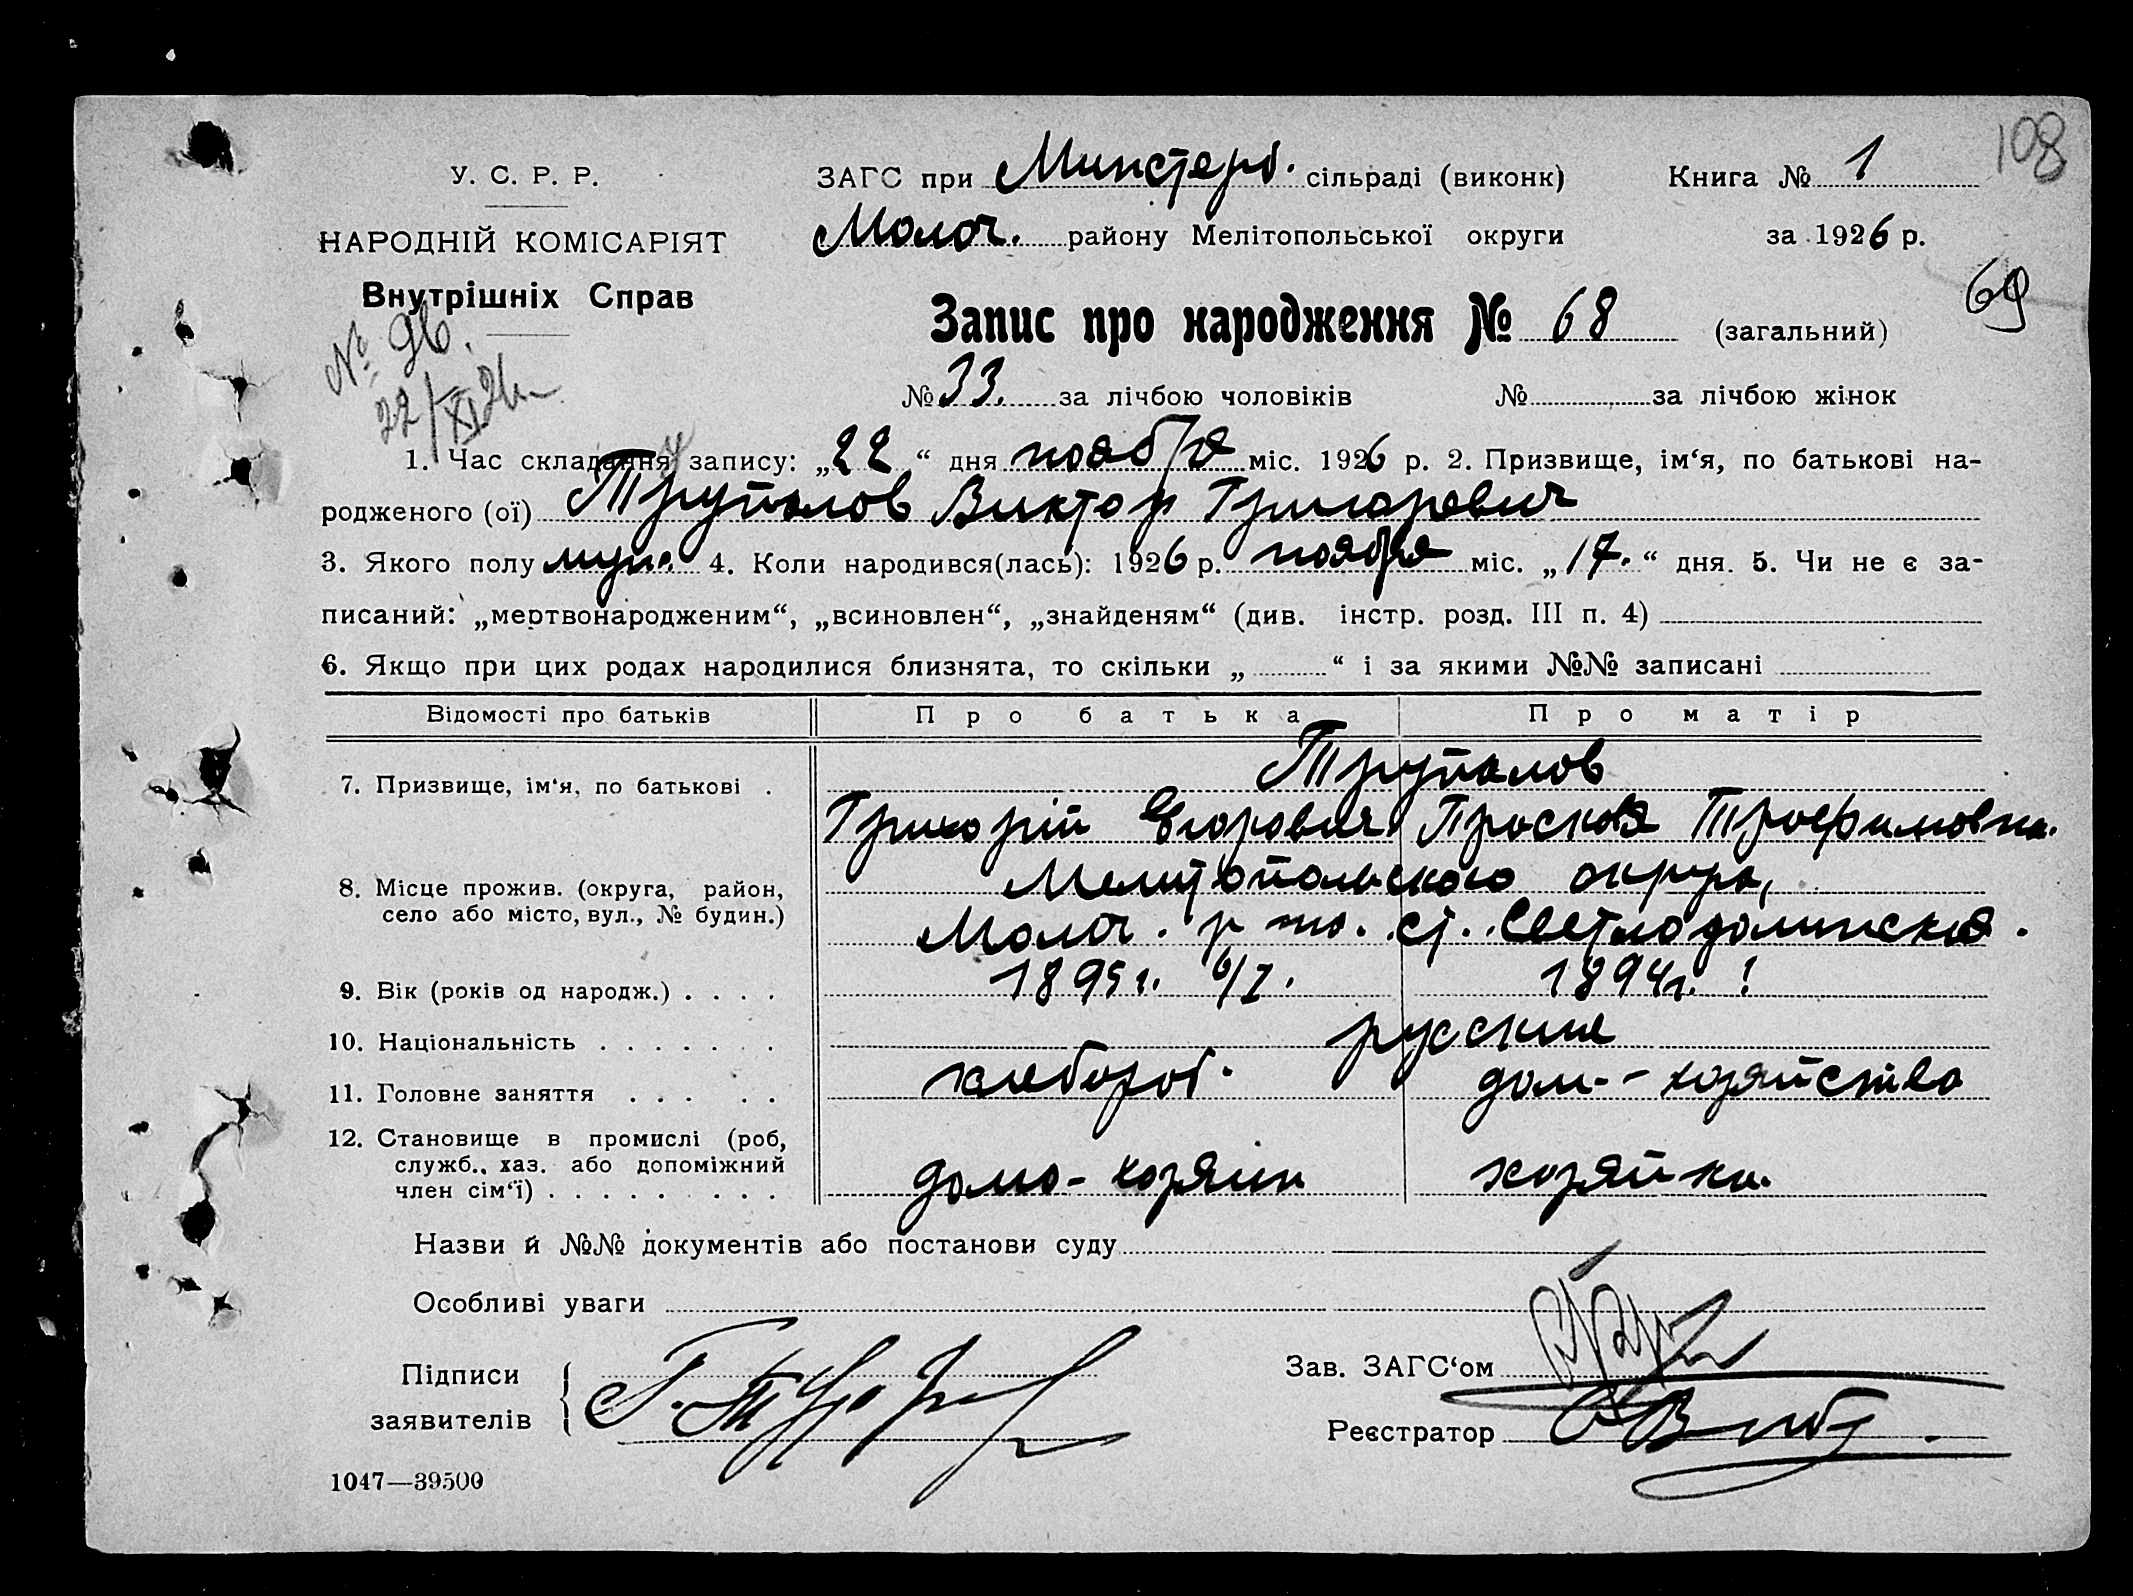 108
У. С. Р. Р.
ЗАГС при Минстерб. сільраді (виконк)
Книга № 1
НАРОДНІЙ КОМІСАРІЯТ
Молоч. району Мелітопольської округи
за 1926 р.
Внутрішніх Справ
69
Запис про народження № 68 (загальний)
№ 96.
22/XI 26
№ 33. за лічбою чоловіків № за лічбою жінок
1. Час складання запису: „22“ дня ноября міс. 1926 р. 2. Призвище, ім‘я, по батькові на-
родженого (ої) Трупалов Виктор Григоревич
3. Якого полу муж. 4. Коли народився(лась): 1926 р. ноября міс. „17.“ дня. 5. Чи не є за-
писаний: „мертвонародженим“, „всиновлен“, „знайденям“ (див. інстр. розд. III п. 4)
6. Якщо при цих родах народилися близнята, то скільки „ “ і за якими №№ записані
Відомості про батьків Про батька Про матір
Трупалов
7. Призвище, ім‘я, по батькові .
Григорій Егорович Просковя Трофимовна.
8. Місце прожив. (округа, район,
село або місто, вул., № будин.)
Мелитопольского округа,
Молоч. р-на. ст. Светлодолинская.
9. Вік (років од народж.) . . . . 1895 г. 6/I. 1894 г. !
10. Національність . . . . . . . русские
11. Головне заняття . . . . . хлебороб. дом.-хозяйство
12. Становище в промислі (роб,
служб., хаз. або допоміжний
член сім‘ї) . . . . . . . . . домо-хозяин хозяйка.
Назви й №№ документів або постанови суду
Особливі уваги
Підписи
заявителів
Зав. ЗАГС‘ом
Реєстратор
1047—39500